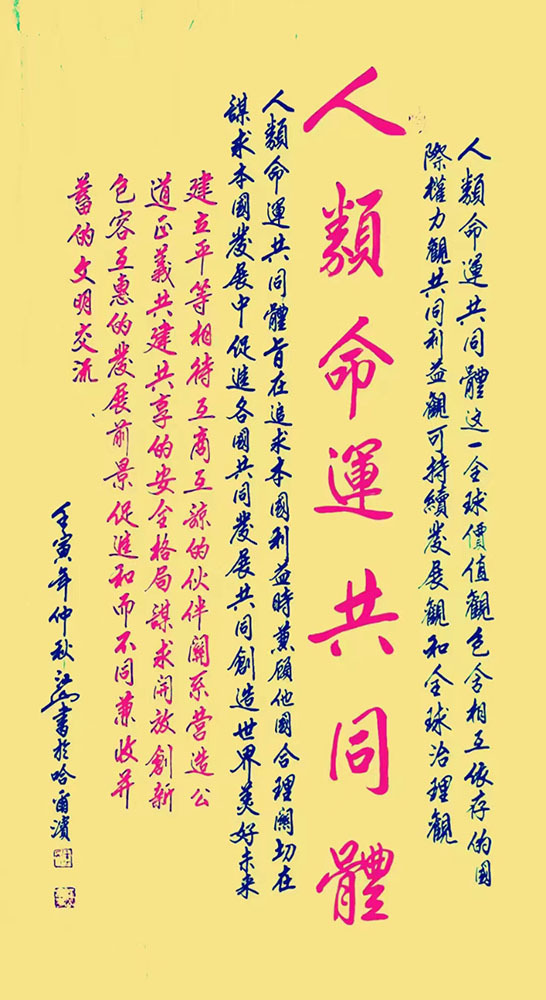 人類命運共同體這一全球價值觀包含相互依存的國
際權力觀共同利益觀可持續發展觀和全球治理觀
人類命運共同體
人類命運共同體旨在追求本國利益時兼顧他國合理關切在
謀求本國發展中促進各國共同發展共同創造世界美好未來
建立平等相待互商互諒的伙伴關系營造公
道正義共建共享的安全格局謀求開放創新
包容互惠的發展前景促進和而不同兼收并
蓄的文明交流
壬寅年仲秋江山書於哈爾濱